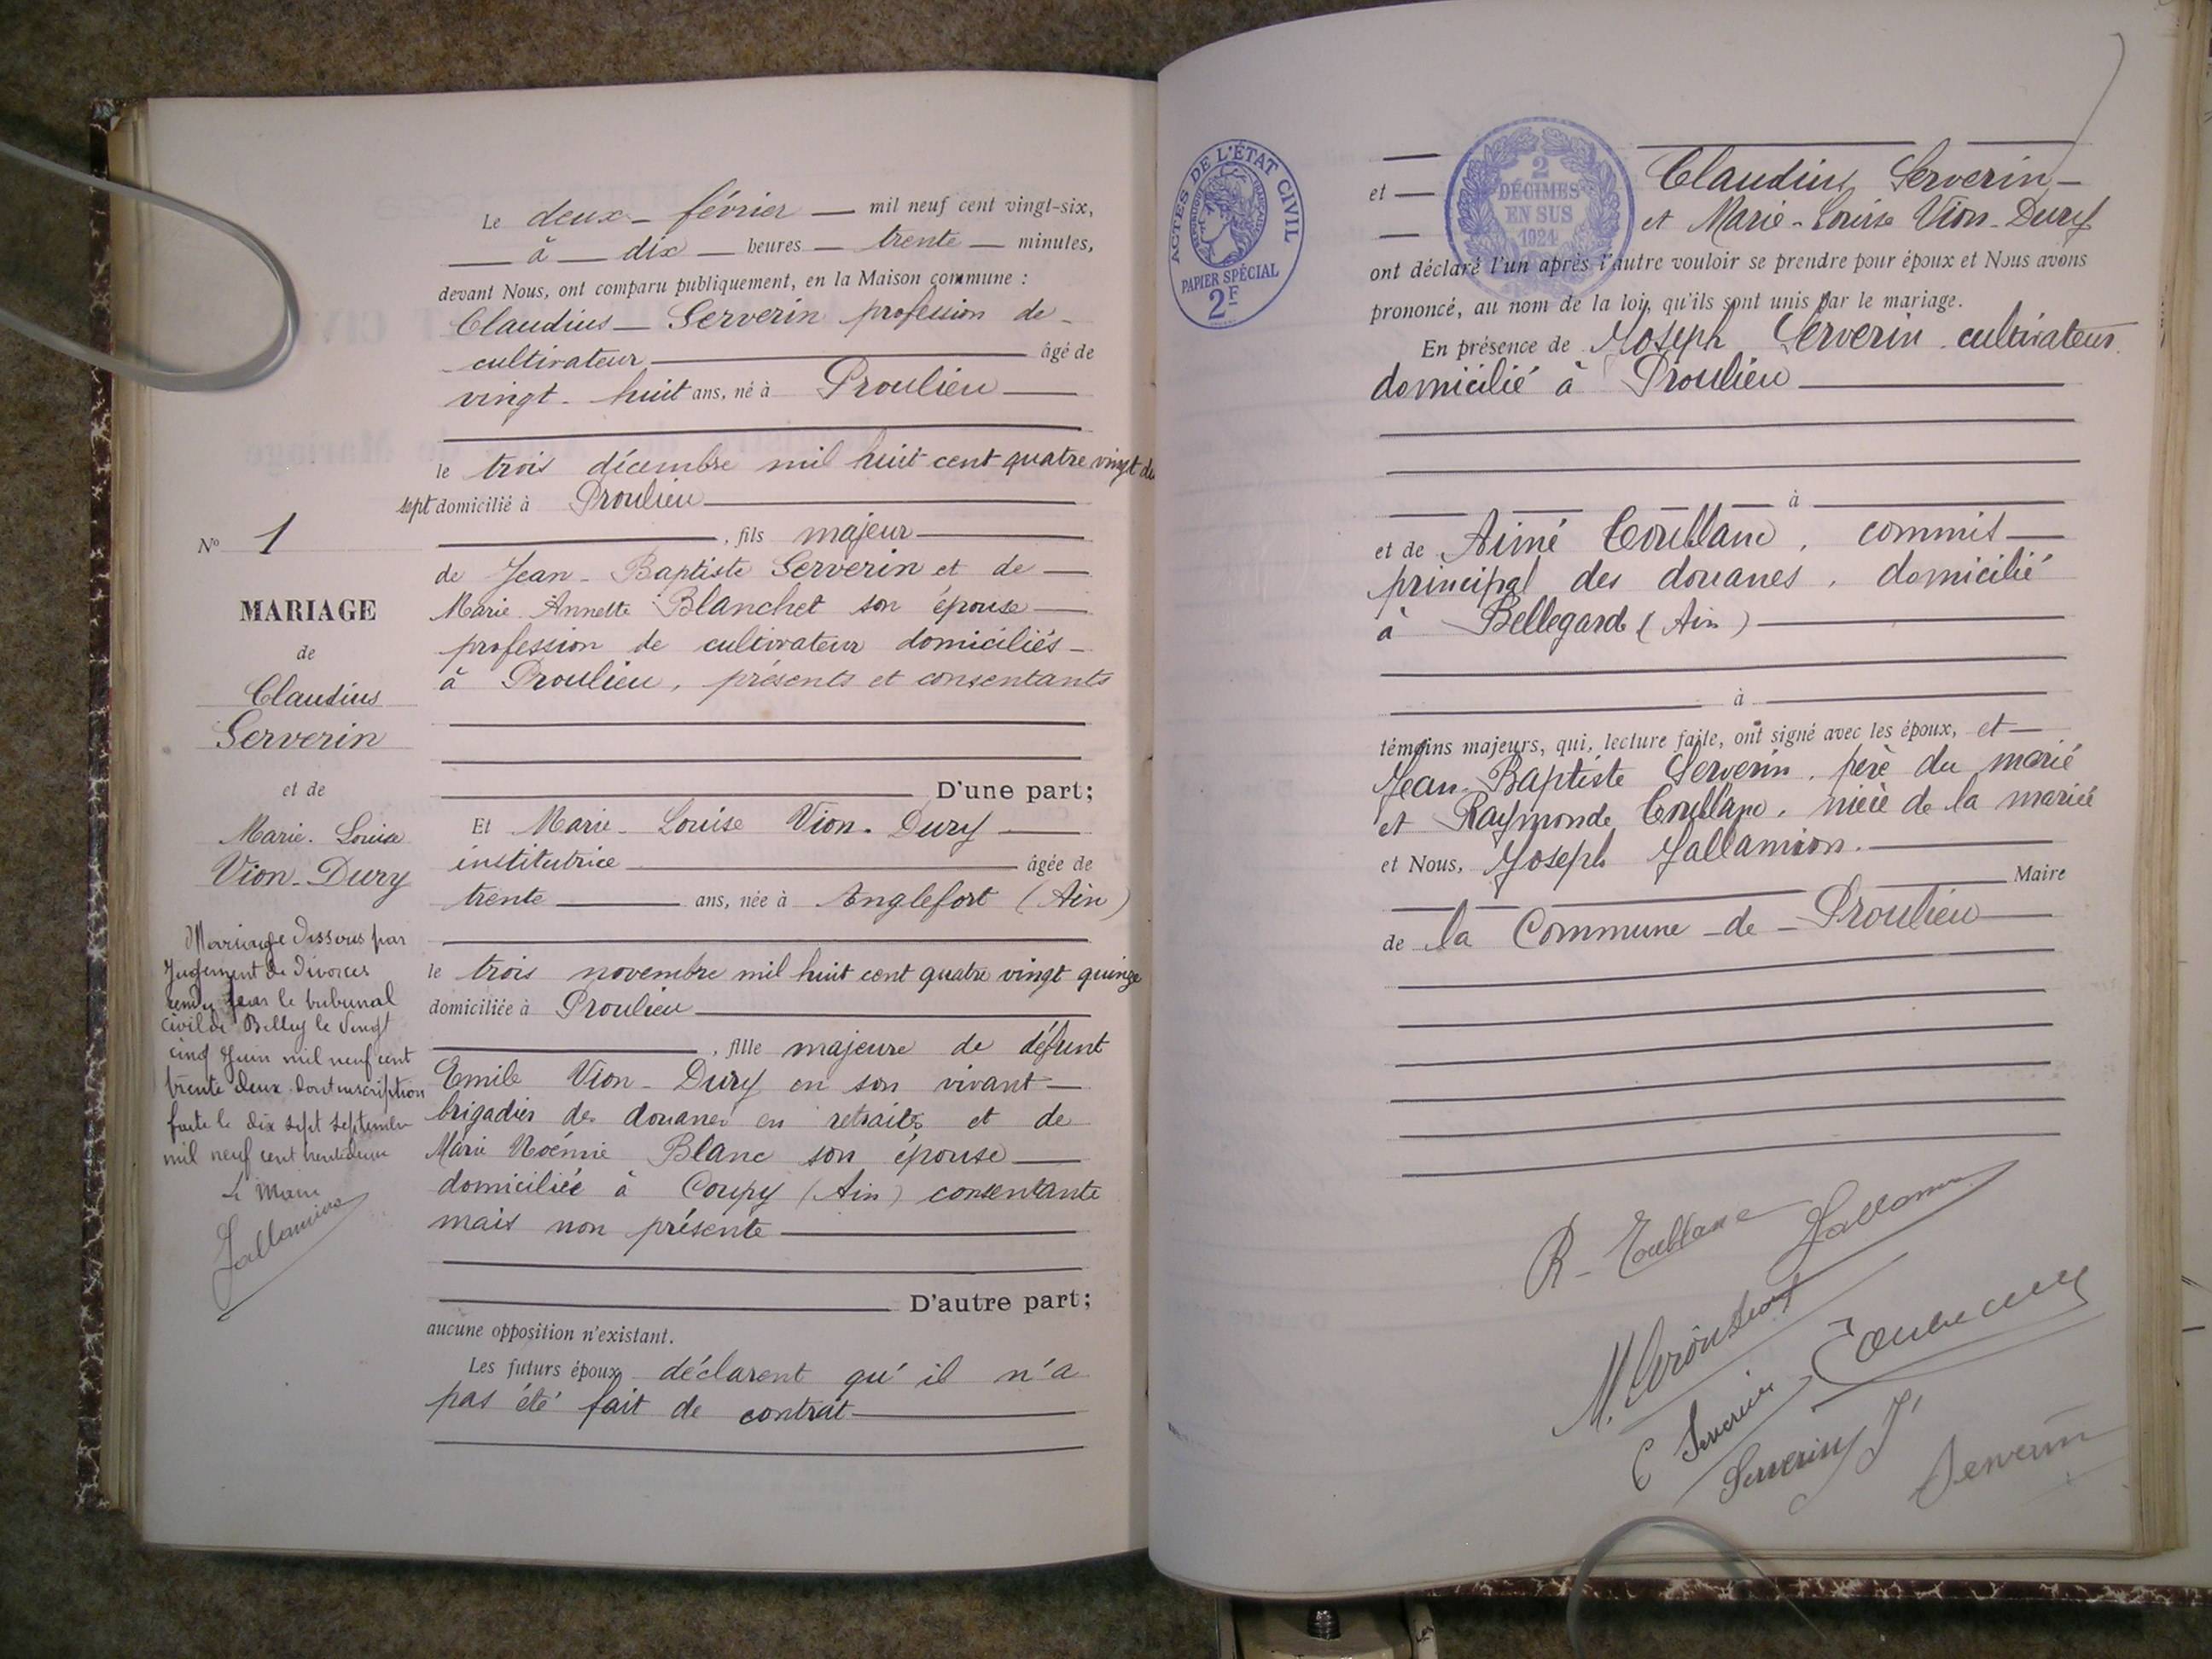 N° 1
MARIAGE
de
Claudius
Serverin
et de
Marie-Louise
Vion-Dury
Mariage dissous par
Jugement de Divorces
rendu par le tribunal
civil de Belley le Vingt
cinq Juin mil neuf cent
trente deux dont inscription
faite le dix sept septembre
mil neuf cent trente deux
Le Maire
Jallamion
Le deux février mil neuf cent vingt-six,
à dix heures trente minutes,
devant Nous, ont comparu publiquement, en la Maison commune :
Claudius Serverin profession de
cultivateur âgé de
vingt-huit ans, né à Proulieu
le trois décembre mil huit cent quatre vingt dix
sept domicilié à Proulieu
, fils majeur
de Jean-Baptiste Serverin et de
Marie Annette Blanchet son épouse
profession de cultivateur domiciliés
à Proulieu, présents et consentants
D'une part;
Et Marie-Louise Vion-Dury
institutrice âgée de
trente ans, née à Anglefort (Ain)
le trois novembre mil huit cent quatre vingt quinze
domiciliée à Proulieu
, fille majeure de défunt
Emile Vion-Dury en son vivant
brigadier des douanes en retraite et de
Marie Noémie Blanc son épouse
domiciliée à Coupy (Ain) consentante
mais non présente
D'autre part;
aucune opposition n'existant.
Les futurs époux déclarent qu'il n'a
pas été fait de contrat
ACTES DE L'ÉTAT CIVIL
RÉPUBLIQUE FRANÇAISE
PAPIER SPÉCIAL
2F
2
DÉCIMES
EN SUS
1924
et Claudius Serverin
et Marie-Louise Vion-Dury
ont déclaré l'un après l'autre vouloir se prendre pour époux et Nous avons
prononcé, au nom de la loi, qu'ils sont unis par le mariage.
En présence de Joseph Serverin cultivateur
domicilié à Proulieu
à
et de Aimé Coullanc, commis
principal des douanes, domicilié
à Bellegarde (Ain)
à
témoins majeurs, qui, lecture faite, ont signé avec les époux, et
Jean-Baptiste Serverin, père du marié
et Raymonde Coullanc, nièce de la mariée
et Nous, Joseph Jallamion.
Maire
de la Commune de Proulieu
Jallamion
C Serverin
Serverin J
Serverin